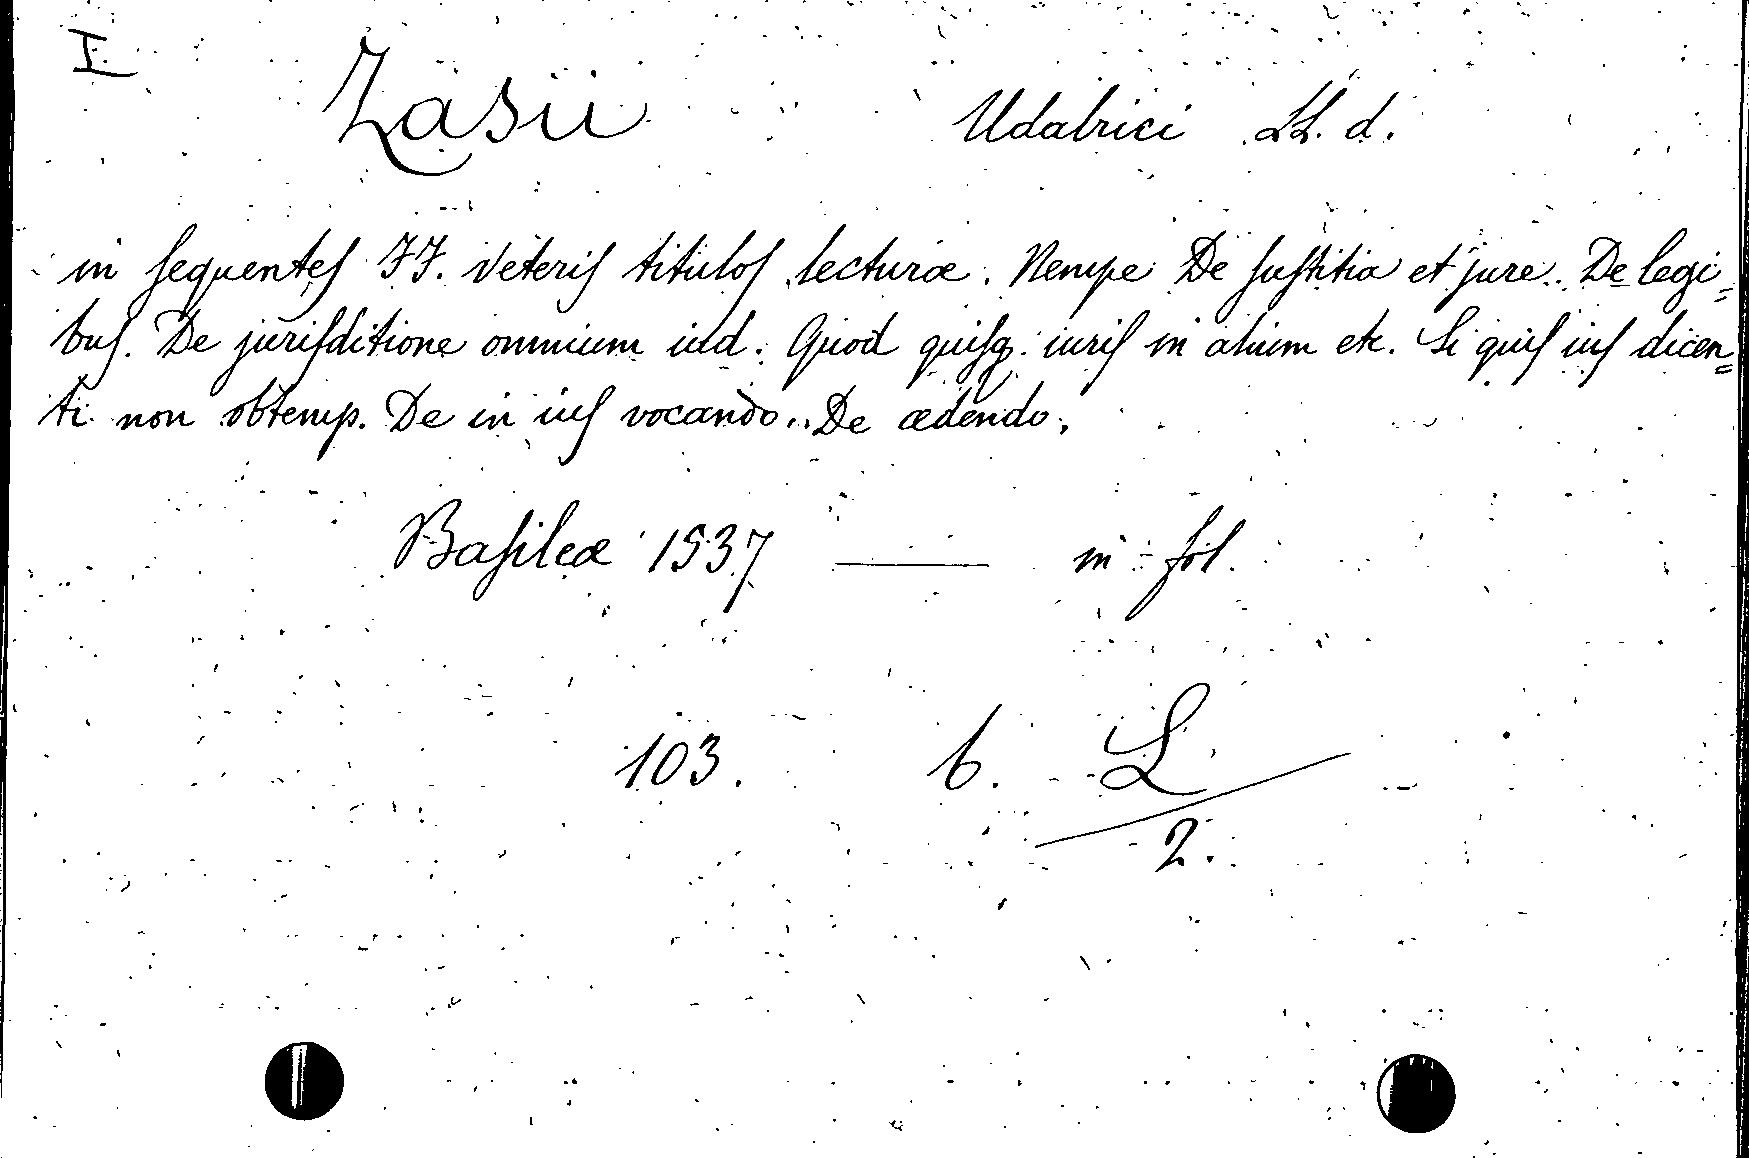 I.
Zasii Udalrici LL. d.
in sequentes FF. veteris titulos lecturæ. Nempe De Justitia et jure. De legi=
bus. De jurisditione omnium iud. Quod quisq. iuris in alium etc. Si quis ius dicen=
ti non obtemp. De in ius vocando. De ædendo.
Basileæ 1537 — in fol.
103. b. L
2.